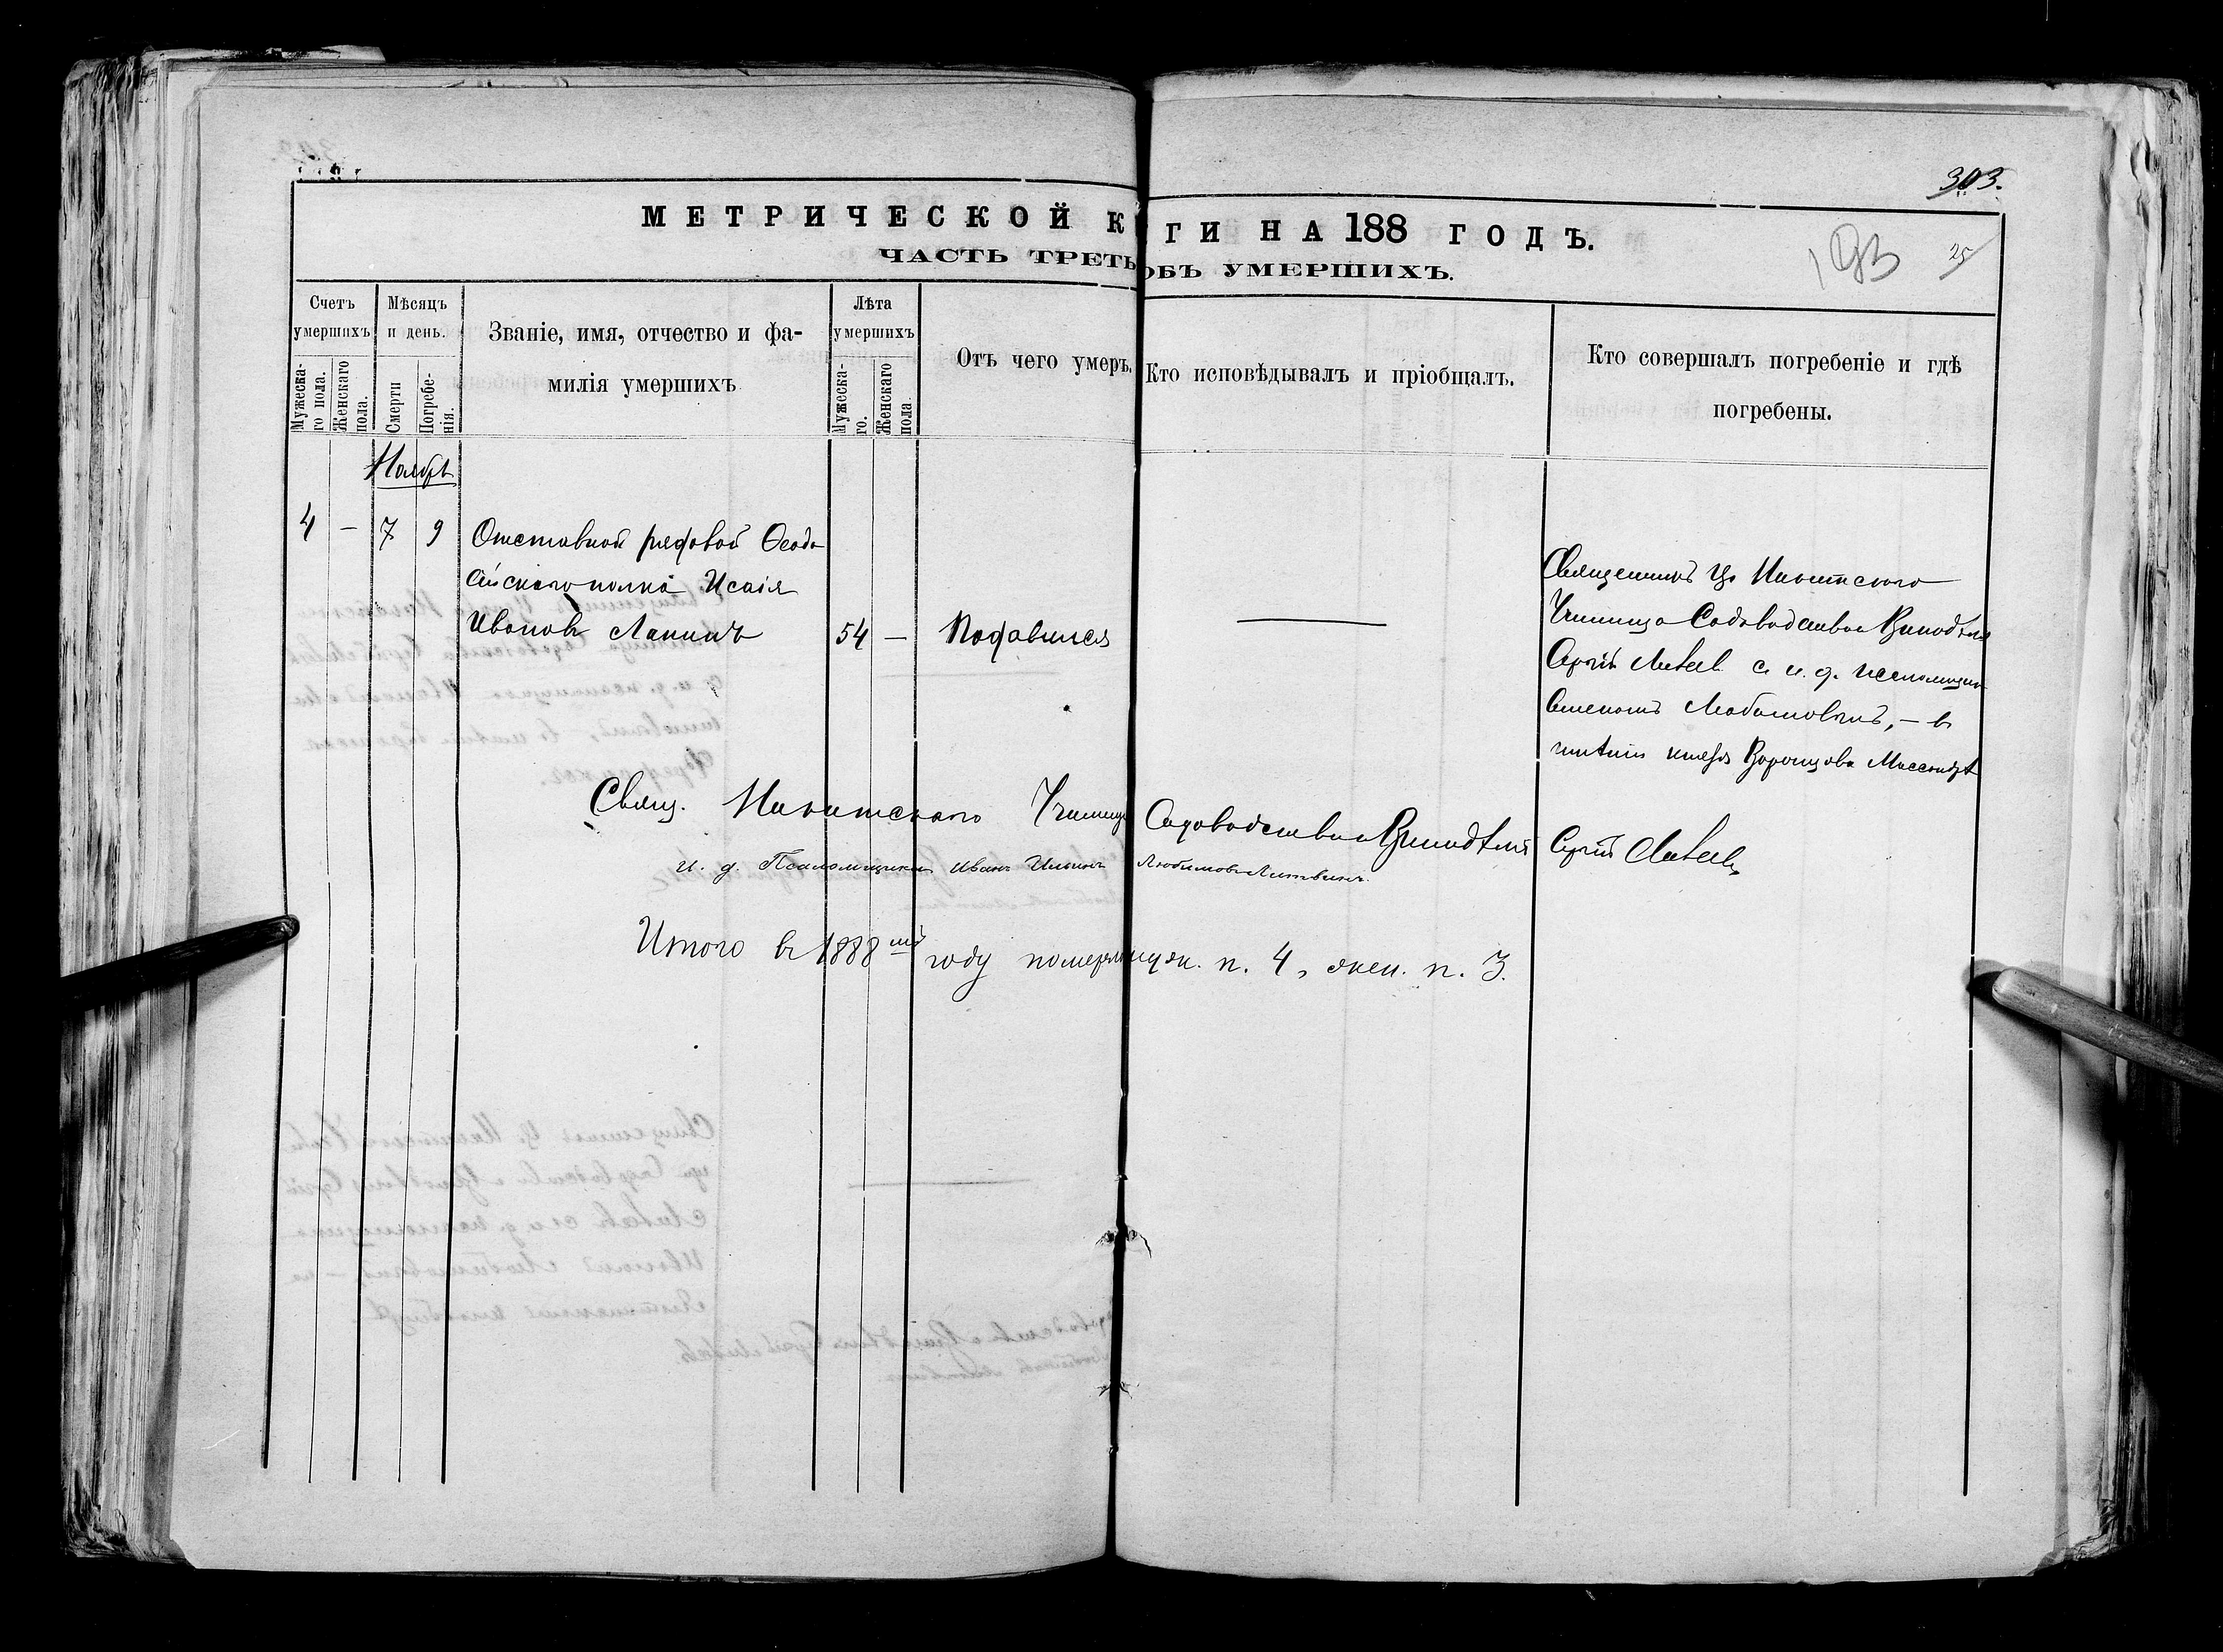 303.
МЕТРИЧЕСКОЙ К ГИ НА 188 ГОДЪ.
193 25
ЧАСТЬ ТРЕТЬ ОБЪ УМЕРШИХЪ.
Счетъ умершихъ
Мужеска-го пола.
Женскаго пола.
Мѣсяцъ и день.
Смерти
Погребе-нія.
Званіе, имя, отчество и фа-
милія умершихъ
Лѣта умершихъ
Мужеска-го.
Женскаго пола
Отъ чего умеръ.
Кто исповѣдывалъ и пріобщалъ.
Кто совершалъ погребеніе и гдѣ
погребены.
Ноябрь
4 — 7 9 Отставной рядовой Ѳеодо
сійскаго полка Исаія
Ивановъ Лапинъ 54 — Подавился —
Священникъ Ц. Никитскаго
Училища Садоводства и Винодѣлія
Сергій с и. д. псаломщика
Любимовымъ, — въ
имѣніи князя Воронцова Массандрѣ
Свящ. Никитскаго Училища Садоводства и Винодѣлія Сергій
и. д. Псаломщика Иванъ Ильинъ Любимовъ-Литвинъ.
Итого въ 1888мъ году померло муж. п. 4, жен. п. 3.